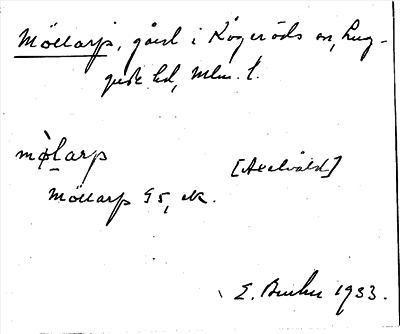 Möllarp, gård i Kågeröds sn, Lug-
gude hd, Mlm. l.
mø̀larp [Axelvåld]
Möllarp G5, ek.
E. 1933.